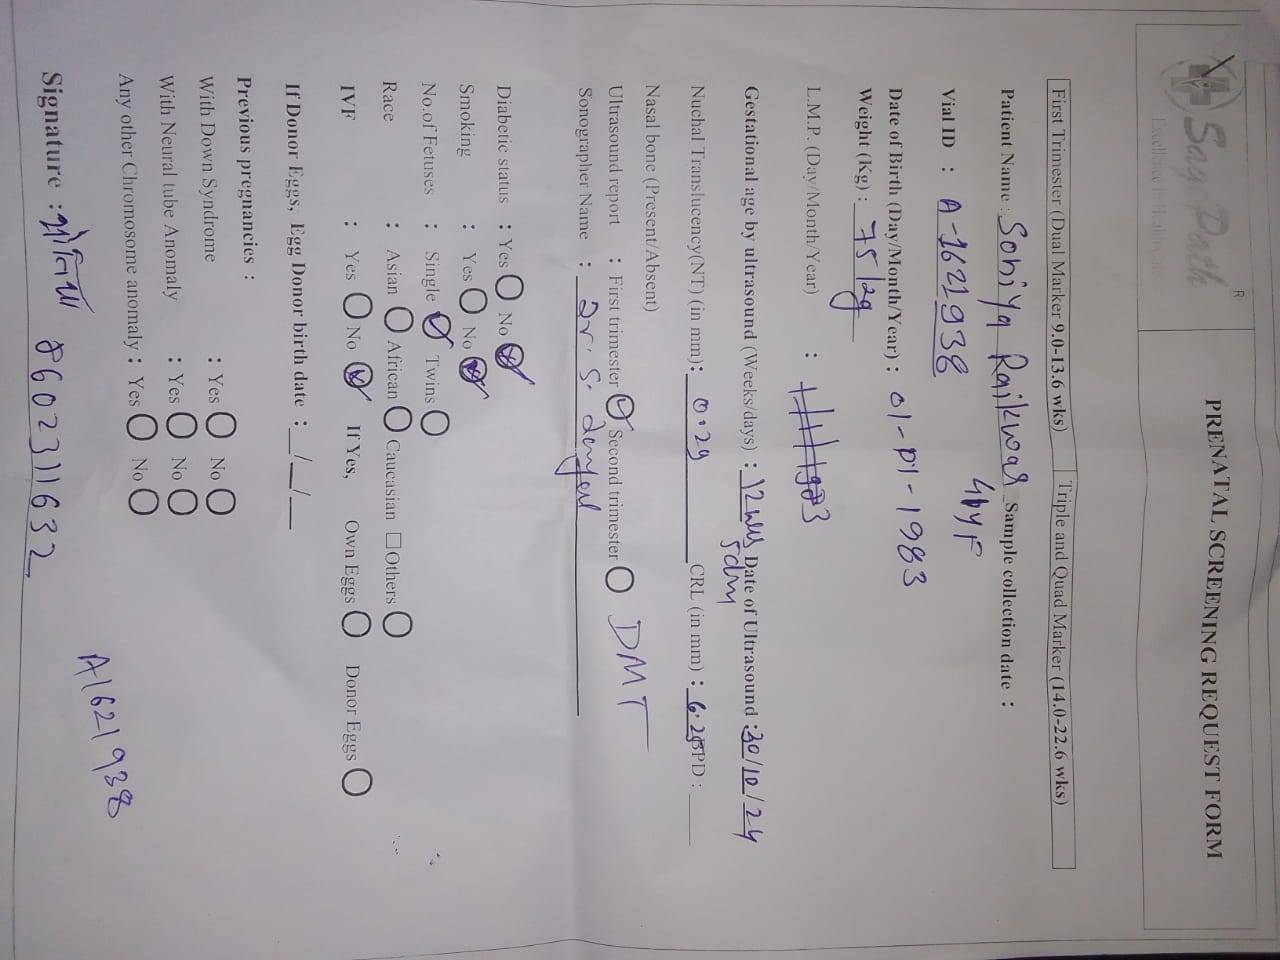 SagePath
R
Excellence In Health Care
PRENATAL SCREENING REQUEST FORM
First Trimester (Dual Marker 9.0-13.6 wks) Triple and Quad Marker (14.0-22.6 wks)
Patient Name : Soniya Raikwar Sample collection date :
Vial ID : A-1621938
Date of Birth (Day/Month/Year) : 01-01-1983
Weight (Kg) : 75
L.M.P. (Day/Month/Year) :
Gestational age by ultrasound (Weeks/days) : 12 Date of Ultrasound : 30/10/24
Nuchal Translucency(NT) (in mm): 0.29 CRL (in mm) : BPD :
Nasal bone (Present/Absent)
Ultrasound report : First trimester Second trimester DMT
Sonographer Name :
Diabetic status : Yes No
Smoking : Yes No
No.of Fetuses : Single Twins
Race : Asian African Caucasian Others
IVF : Yes No If Yes, Own Eggs Donor Eggs
If Donor Eggs, Egg Donor birth date : __/__/__
Previous pregnancies :
With Down Syndrome : Yes No
With Neural tube Anomaly : Yes No
Any other Chromosome anomaly : Yes No
A1621938
Signature : 8602311632